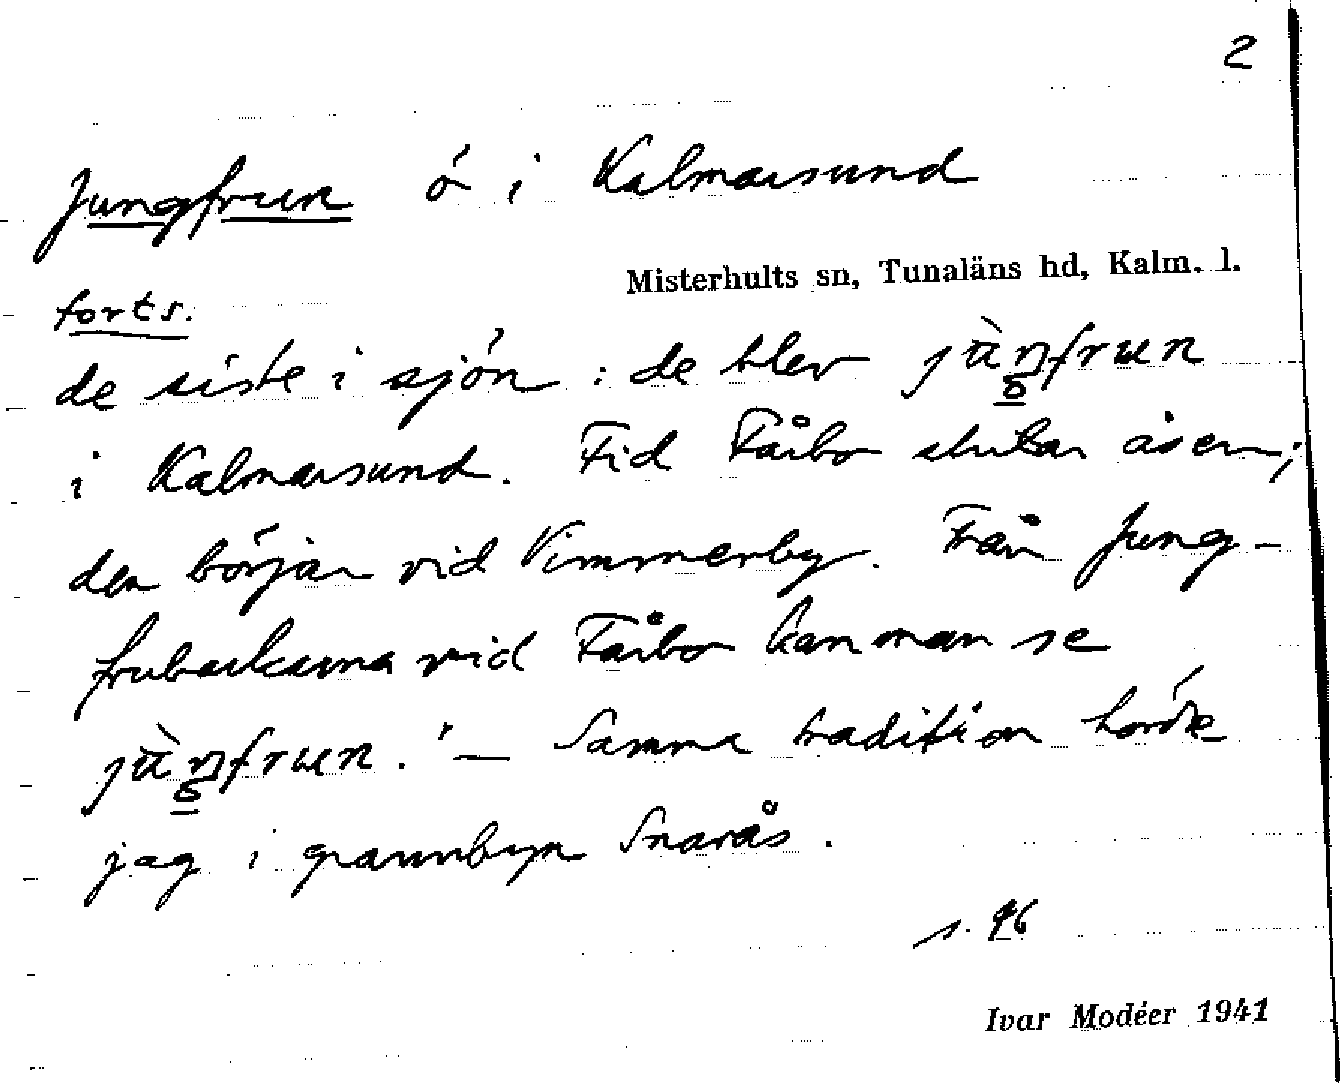 2
Jungfrun ö i Kalmarsund
Misterhults sn, Tunaläns hd, Kalm. l.
forts.
de siste i sjön : de blev jùŋfrun
i Kalmarsund. Vid Fårbo slutar åsen;
den börjar vid Vimmerby. Från Jung-
frubackarna vid Fårbo kan man se
jùŋfrun.' — Samma tradition hörde
jag i grannbyn Snarås.
s. 96
Ivar Modéer 1941